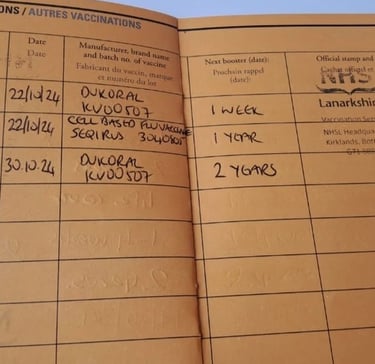 ONS / AUTRES VACCINATIONS
Date
Date
Manufacturer, brand name
and batch no. of vaccine
Fabricant du vaccin, marque
et numéro du lot
Next booster (date):
Prochain rappel
(date):
Official stamp and
Cachet officiel et
NHS
Lanarkshir
22/10/24
DUKORAL
KV00507
1 WEEK
Vaccination Serv
NHSL Headqua
Kirklands, Both
G71
22/10/24
CELL BASED FLU VACCINE
SEQIRUS
1 YEAR
30.10.24
DUKORAL
KV00507
2 YEARS